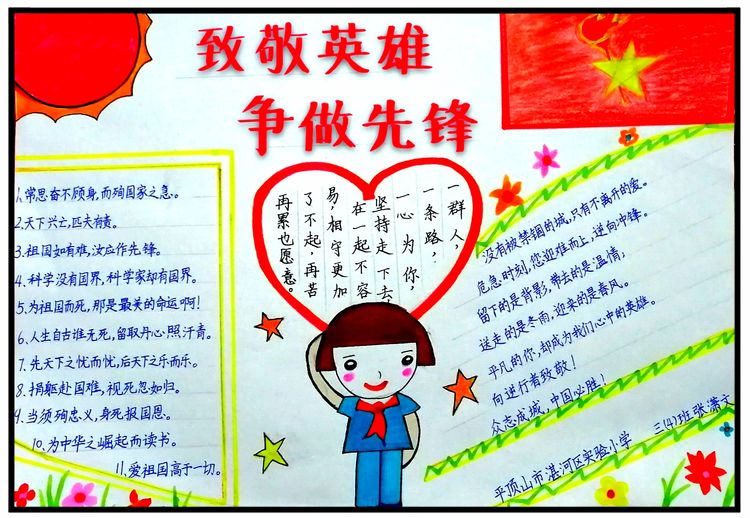 致敬英雄
争做先锋
1.常思奋不顾身,而殉国家之急。
2.天下兴亡,匹夫有责。
3.祖国如有难,汝应作先锋。
4.科学没有国界,科学家却有国界。
5.为祖国而死,那是最美的命运啊!
6.人生自古谁无死,留取丹心照汗青。
7.先天下之忧而忧,后天下之乐而乐。
8.捐躯赴国难,视死忽如归。
9.当须殉忠义,身死报国恩。
10.为中华之崛起而读书。
11.爱祖国高于一切。
一群人,
一条路,
一心为你,
坚持走下去
在一起不容
易,相守更加
了不起,再苦
再累也愿意。
没有被禁锢的城,只有不离开的爱。
危急时刻,您迎难而上,逆向冲锋。
留下的是背影,带去的是温情,
送走的是冬雨,迎来的是春风。
平凡的你,却成为我们心中的英雄。
向逆行着致敬!
众志成城,中国必胜!
平顶山市湛河区实验小学 三(4)班张潇文